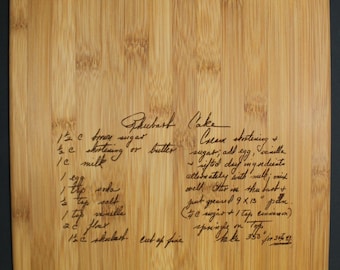 Rhubarb Cake
1½ c brown sugar
½ c shortening or butter
1 c milk
1 egg
1 tsp soda
½ tsp salt
1 tsp vanilla
2 c flour
1½ c rhubarb cut up fine
Cream shortening &
sugar, add egg, vanilla
& sifted dry ingredients
alternately with milk, mix
well. Stir in rhubarb &
put greased 9 x 13" pan
(½ c sugar & 1 tsp cinnamon)
sprinkle on top.
Bake 350° for